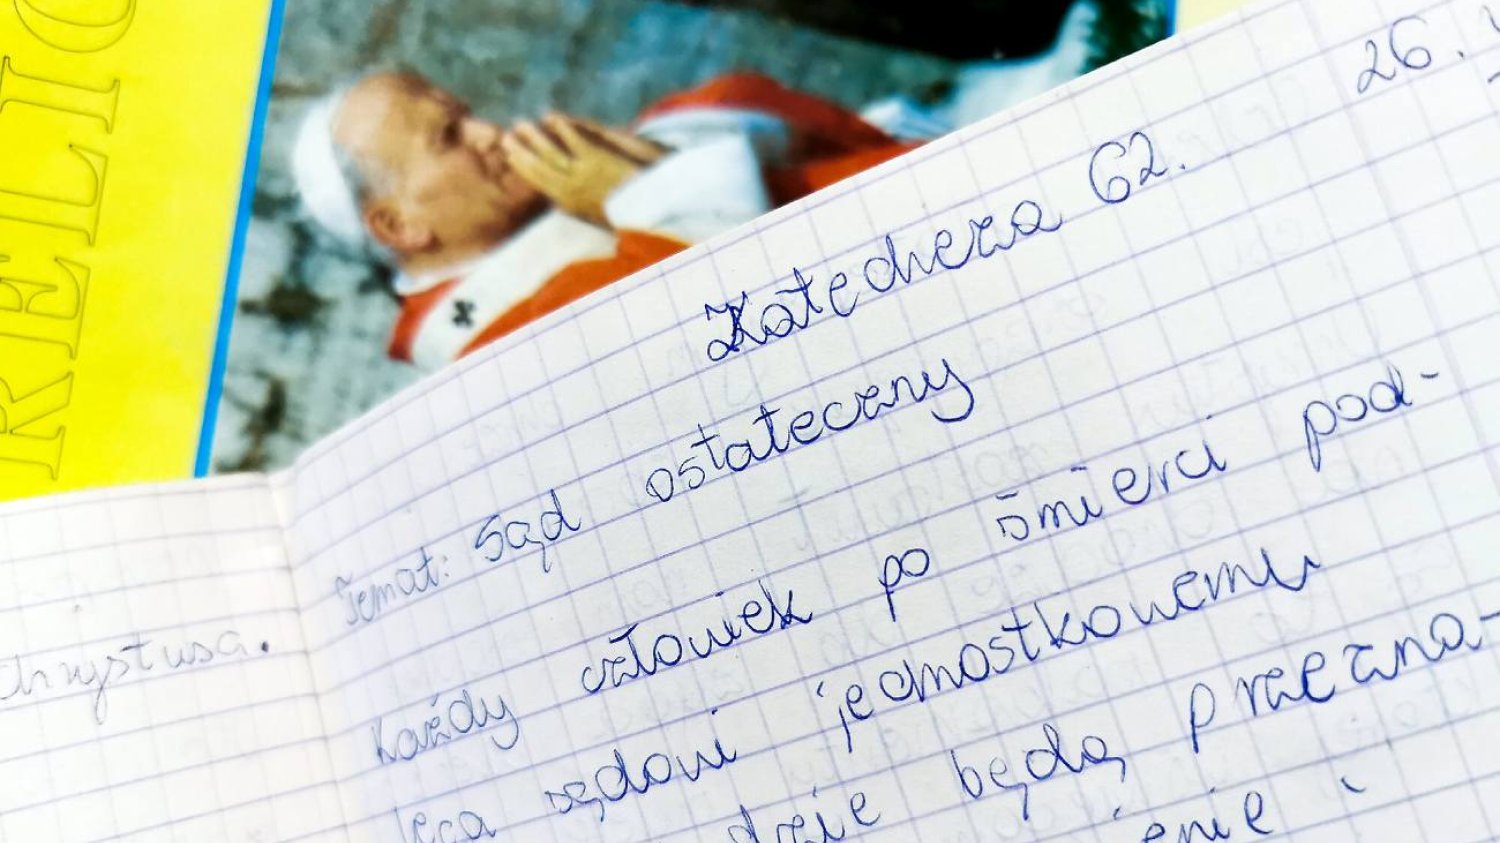 RELIG
26.
Katecheza 62.
Temat: Sąd ostateczny
Każdy człowiek po śmierci pod-
lega sądowi jednostkowemu
będą przezna-
i
Chrystusa.